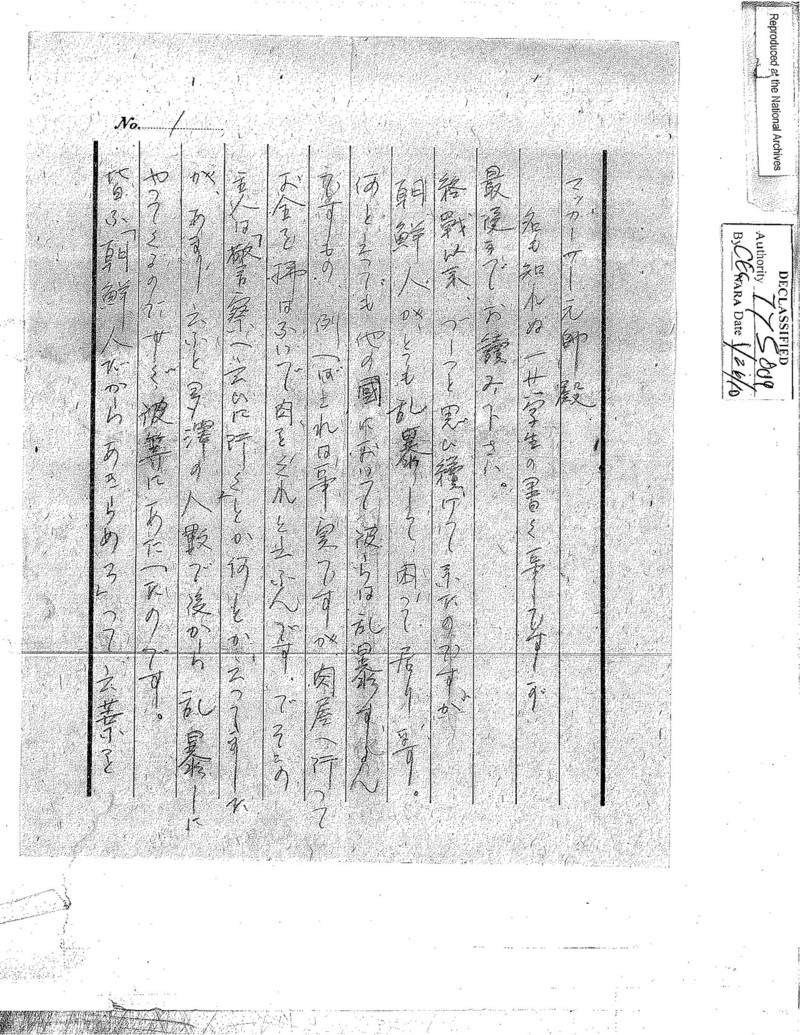 No. 1
マッカーサー元帥殿
名も知れぬ一女学生の書く事ですが
最後までお讀み下さい。
終戰以来、ずーっと思ひ續けて来たのですが
朝鮮人がとても乱暴して、困って居ります。
何と云っても他の國において彼らは乱暴すぎん
すもの、例へばこれは事実ですが肉屋へ行って
お金を拂はないで肉をくれと云ふんです。でそこの
主人は「警察へ云ひに行く」とか何とか云ってました
が、あまり云ふと多澤の人数で後から乱暴しに
やってくるのですぐ彼等にあたへたのです。
皆ふ「朝鮮人だからあきらめろ」って云葉を
Reproduced at the National Archives
DECLASSIFIED
Authority
By NARA Date